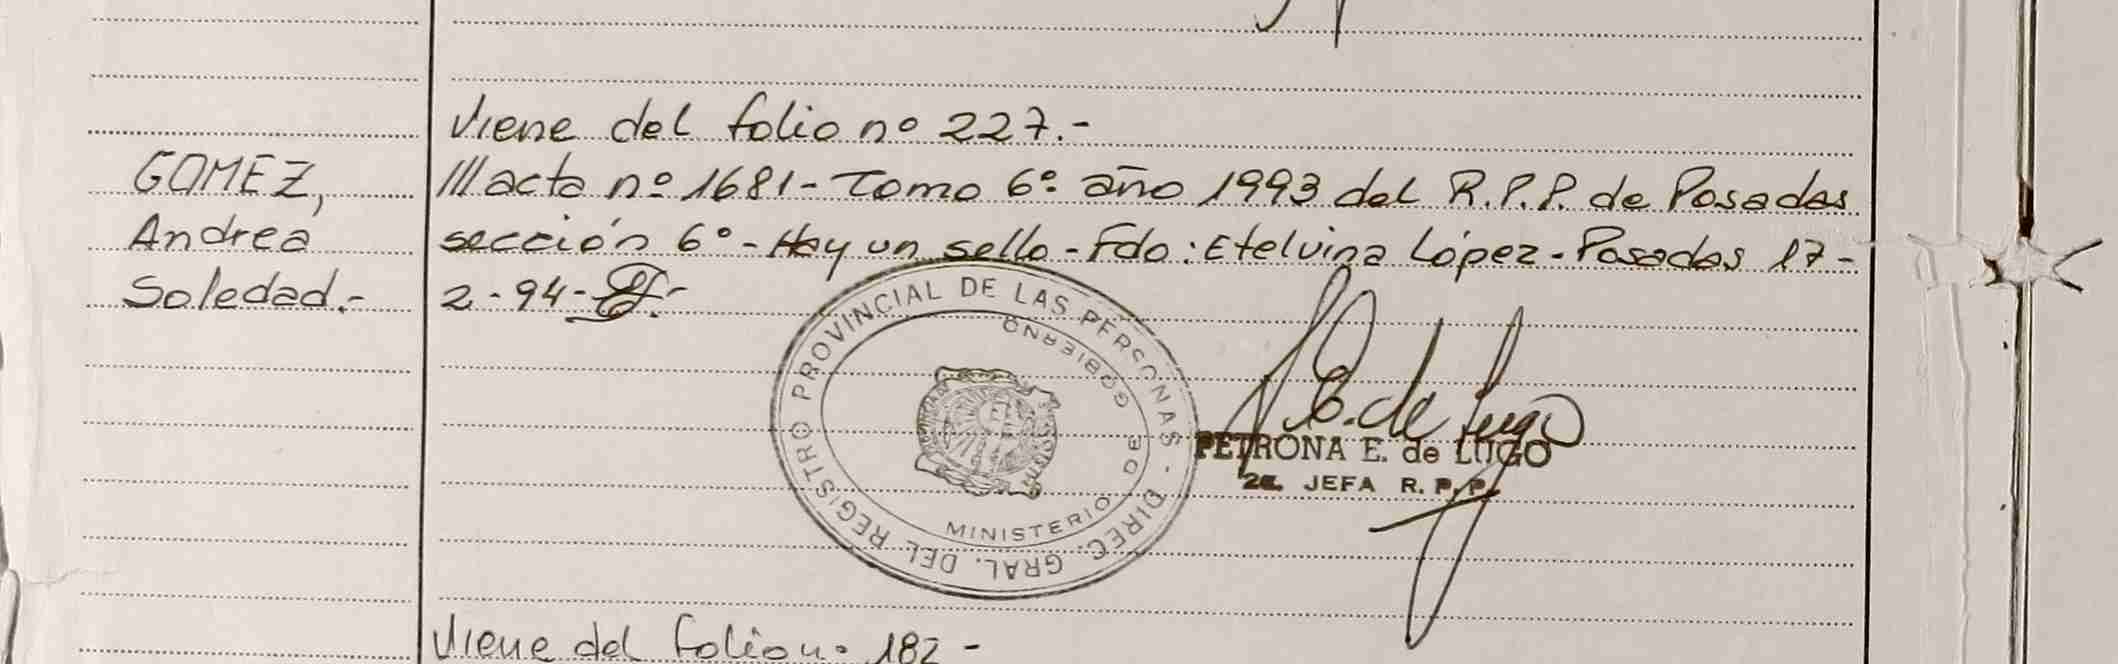 Viene del folio nº 227.-
GOMEZ,
Andrea
Soledad.-
///acta nº 1681- Tomo 6º año 1993 del R.P.P. de Posadas
sección 6º- Hay un sello - Fdo: Etelvina López - Posadas 17-
2-94-
REGISTRO PROVINCIAL DE LAS PERSONAS - DIREC. GRAL. DEL
MINISTERIO DE GOBIERNO
P.E. de Lugo
PETRONA E. de LUGO
2a. JEFA R. P. P.
Viene del folio nº 182 -